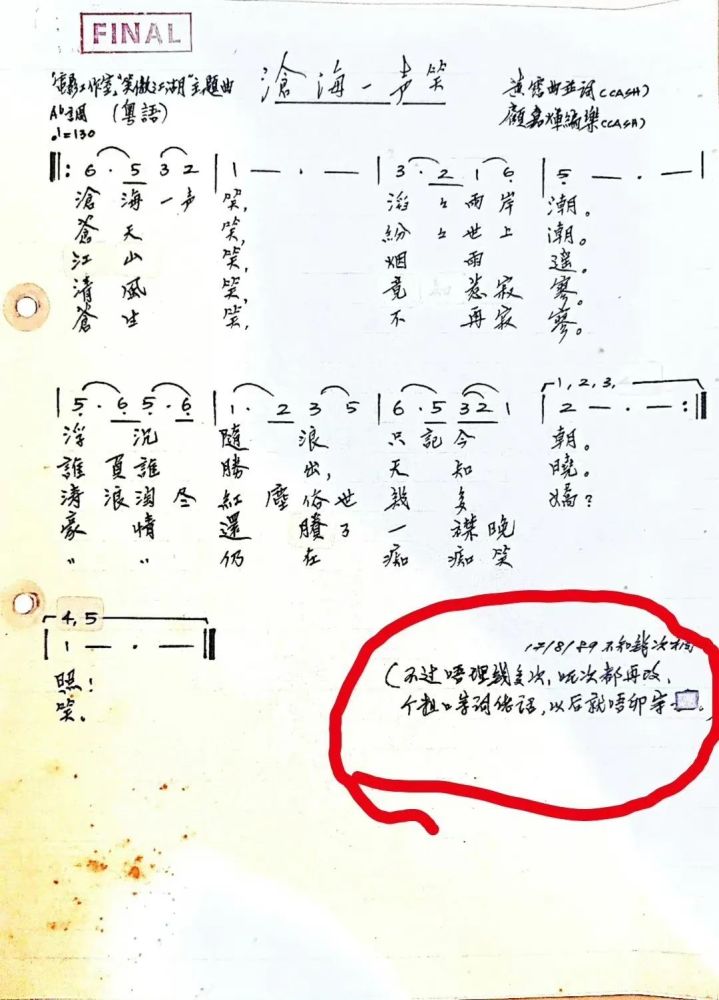 FINAL
滄海一声笑
"電影工作室"笑傲江湖"主題曲
Ab調 (粵語)
♩=130
黃霑曲並詞(CASH)
顧嘉煇編樂(CASH)
‖: 6 · 5 3 2 | 1 — · — | 3 · 2 1 6 | 5 — · — |
滄海一声笑, 滔々兩岸潮。
蒼天笑, 紛々世上潮。
江山笑, 烟雨遙。
清風笑, 竟惹寂寥。
蒼生笑, 不再寂寥。
| 5 · 6 5 · 6 | 1 · 2 3 5 | 6 · 5 3 2 1 | 2 — · — :‖
1, 2, 3,
浮沉隨浪只記今朝。
誰負誰勝出,天知曉。
濤浪淘尽紅塵俗世幾多嬌?
豪情還賸了一襟晚
〃 〃 仍在痴痴笑
4, 5
1 — · — ‖
照!
笑。
17/8/89 不知第次稿
(不过唔理幾多次,呢次都再改,
个粗口等詞俗話,以后就唔印字